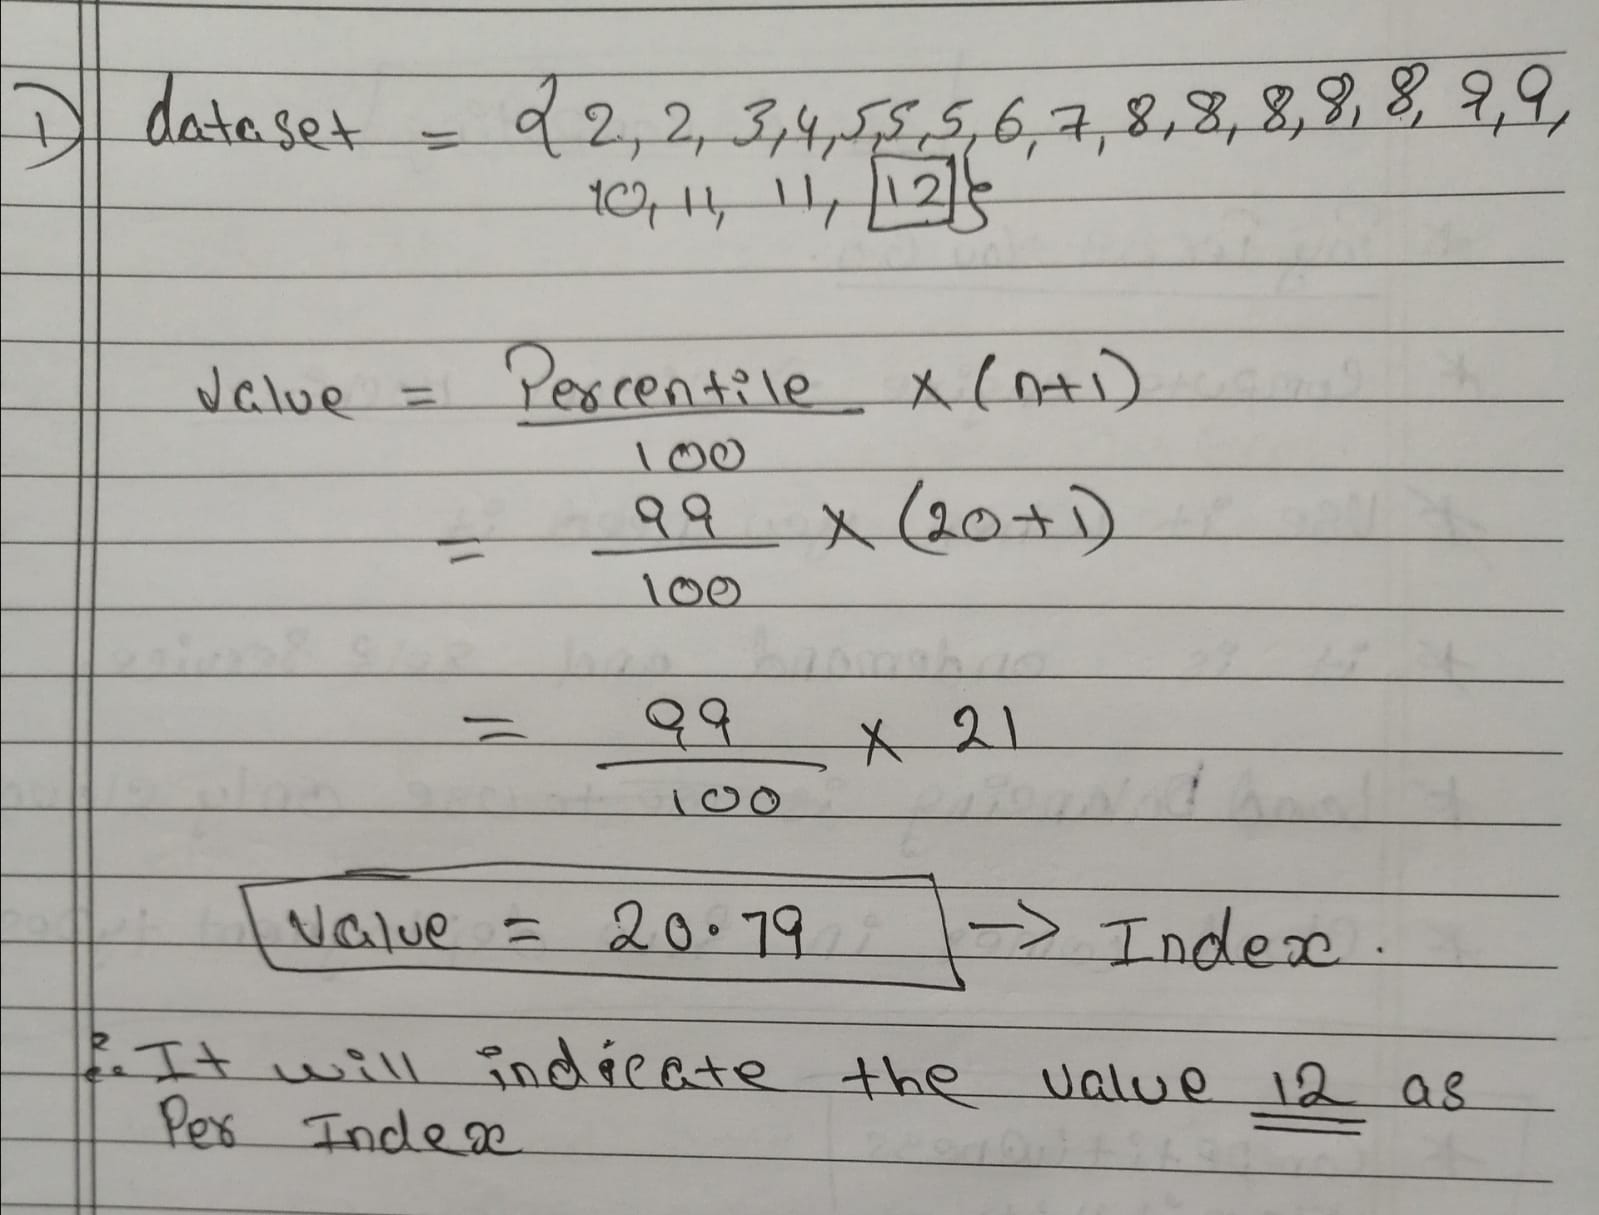 1) dataset = { 2, 2, 3, 4, 5, 5, 5, 6, 7, 8, 8, 8, 8, 8, 9, 9,
10, 11, 11, 12 }
Value = Percentile × (n+1)
100
= 99 × (20+1)
100
= 99 × 21
100
Value = 20.79 → Index.
∴ It will indicate the value 12 as
Per Index